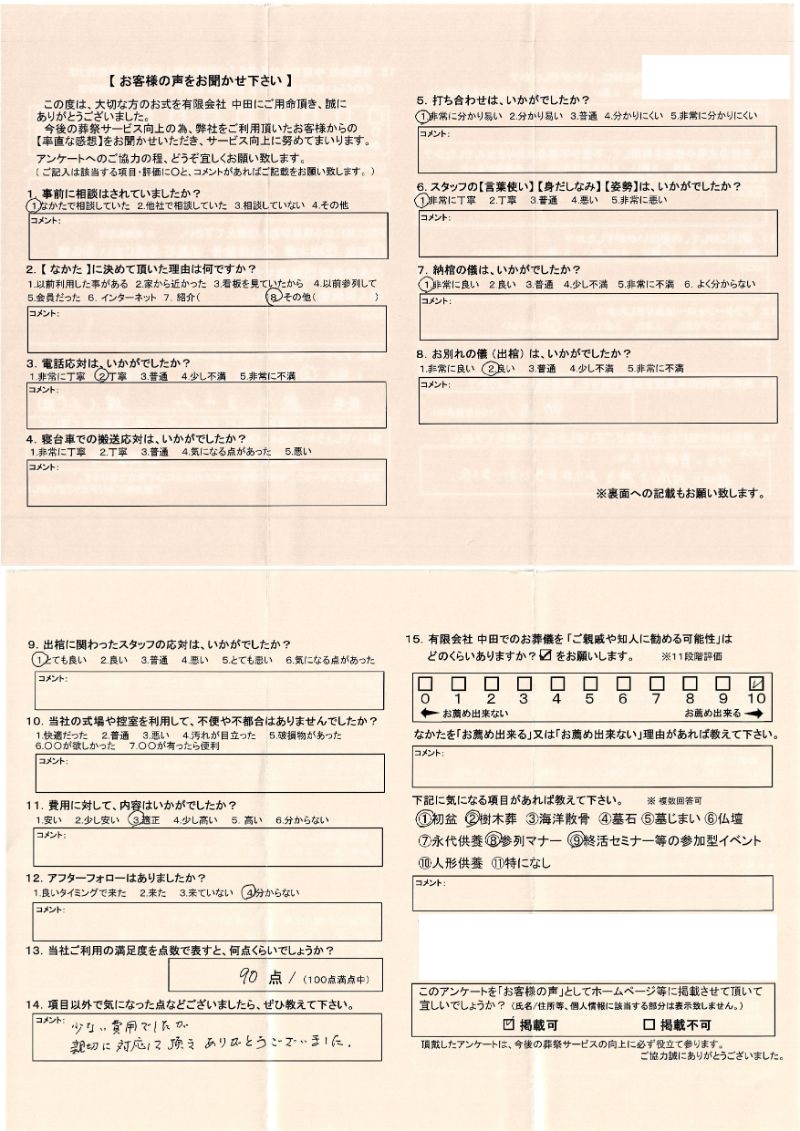 【 お客様の声をお聞かせ下さい 】
この度は、大切な方のお式を有限会社 中田にご用命頂き、誠に
ありがとうございました。
今後の葬祭サービス向上の為、弊社をご利用頂いたお客様からの
【率直な感想】をお聞かせいただき、サービス向上に努めてまいります。
アンケートへのご協力の程、どうぞ宜しくお願い致します。
( ご記入は該当する項目・評価に○と、コメントがあればご記載をお願い致します。 )
1. 事前に相談はされていましたか?
1.なかたで相談していた 2.他社で相談していた 3.相談していない 4.その他
コメント:
2.【 なかた 】に決めて頂いた理由は何ですか?
1.以前利用した事がある 2.家から近かった 3.看板を見ていたから 4.以前参列して
5.会員だった 6. インターネット 7. 紹介( 8.その他( )
コメント:
3. 電話応対は、いかがでしたか?
1.非常に丁寧 2.丁寧 3.普通 4.少し不満 5.非常に不満
コメント:
4. 寝台車での搬送応対は、いかがでしたか?
1.非常に丁寧 2.丁寧 3.普通 4.気になる点があった 5.悪い
コメント:
5. 打ち合わせは、いかがでしたか?
1.非常に分かり易い 2.分かり易い 3.普通 4.分かりにくい 5.非常に分かりにくい
コメント:
6. スタッフの【言葉使い】【身だしなみ】【姿勢】は、いかがでしたか?
1.非常に丁寧 2.丁寧 3.普通 4.悪い 5.非常に悪い
コメント:
7. 納棺の儀は、いかがでしたか?
1.非常に良い 2.良い 3.普通 4.少し不満 5.非常に不満 6. よく分からない
コメント:
8. お別れの儀(出棺)は、いかがでしたか?
1.非常に良い 2.良い 3.普通 4.少し不満 5.非常に不満
コメント:
※裏面への記載もお願い致します。
9. 出棺に関わったスタッフの応対は、いかがでしたか?
1.とても良い 2.良い 3.普通 4.悪い 5.とても悪い 6.気になる点があった
コメント:
10. 当社の式場や控室を利用して、不便や不都合はありませんでしたか?
1.快適だった 2.普通 3.悪い 4.汚れが目立った 5.破損物があった
6.○○が欲しかった 7.○○が有ったら便利
コメント:
11. 費用に対して、内容はいかがでしたか?
1.安い 2.少し安い 3.適正 4.少し高い 5. 高い 6.分からない
コメント:
12. アフターフォローはありましたか?
1.良いタイミングで来た 2.来た 3.来ていない 4.分からない
コメント:
13. 当社ご利用の満足度を点数で表すと、何点くらいでしょうか?
90 点 / (100点満点中)
14. 項目以外で気になった点などございましたら、ぜひ教えて下さい。
コメント: 少ない費用でしたが
親切に対応して頂き ありがとうございました。
15. 有限会社 中田でのお葬儀を「ご親戚や知人に勧める可能性」は
どのくらいありますか? ☑ をお願いします。 ※11段階評価
0 1 2 3 4 5 6 7 8 9 10
お薦め出来ない お薦め出来る
なかたを「お薦め出来る」又は「お薦め出来ない」理由があれば教えて下さい。
コメント:
下記に気になる項目があれば教えて下さい。 ※ 複数回答可
①初盆 ②樹木葬 ③海洋散骨 ④墓石 ⑤墓じまい ⑥仏壇
⑦永代供養 ⑧参列マナー ⑨終活セミナー等の参加型イベント
⑩人形供養 ⑪特になし
コメント:
このアンケートを「お客様の声」としてホームページ等に掲載させて頂いて
宜しいでしょうか? (氏名/住所等、個人情報に該当する部分は表示致しません。)
☑ 掲載可 □ 掲載不可
頂戴したアンケートは、今後の葬祭サービスの向上に必ず役立て参ります。
ご協力誠にありがとうございました。